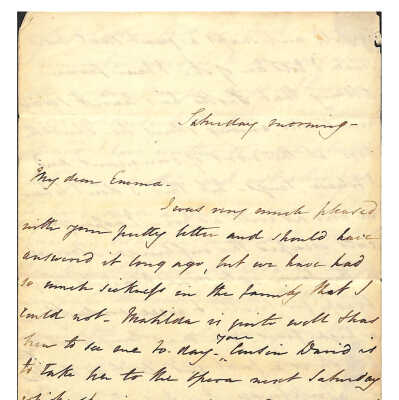 Saturday morning -
My dear Emma -
I was very much pleased
with your pretty letter and should have
answered it long ago, but we have had
so much sickness in the family that I
could not - Mathilda is quite well & has
to see me to-day - your Cousin David is
to take her to the Opera next Saturday